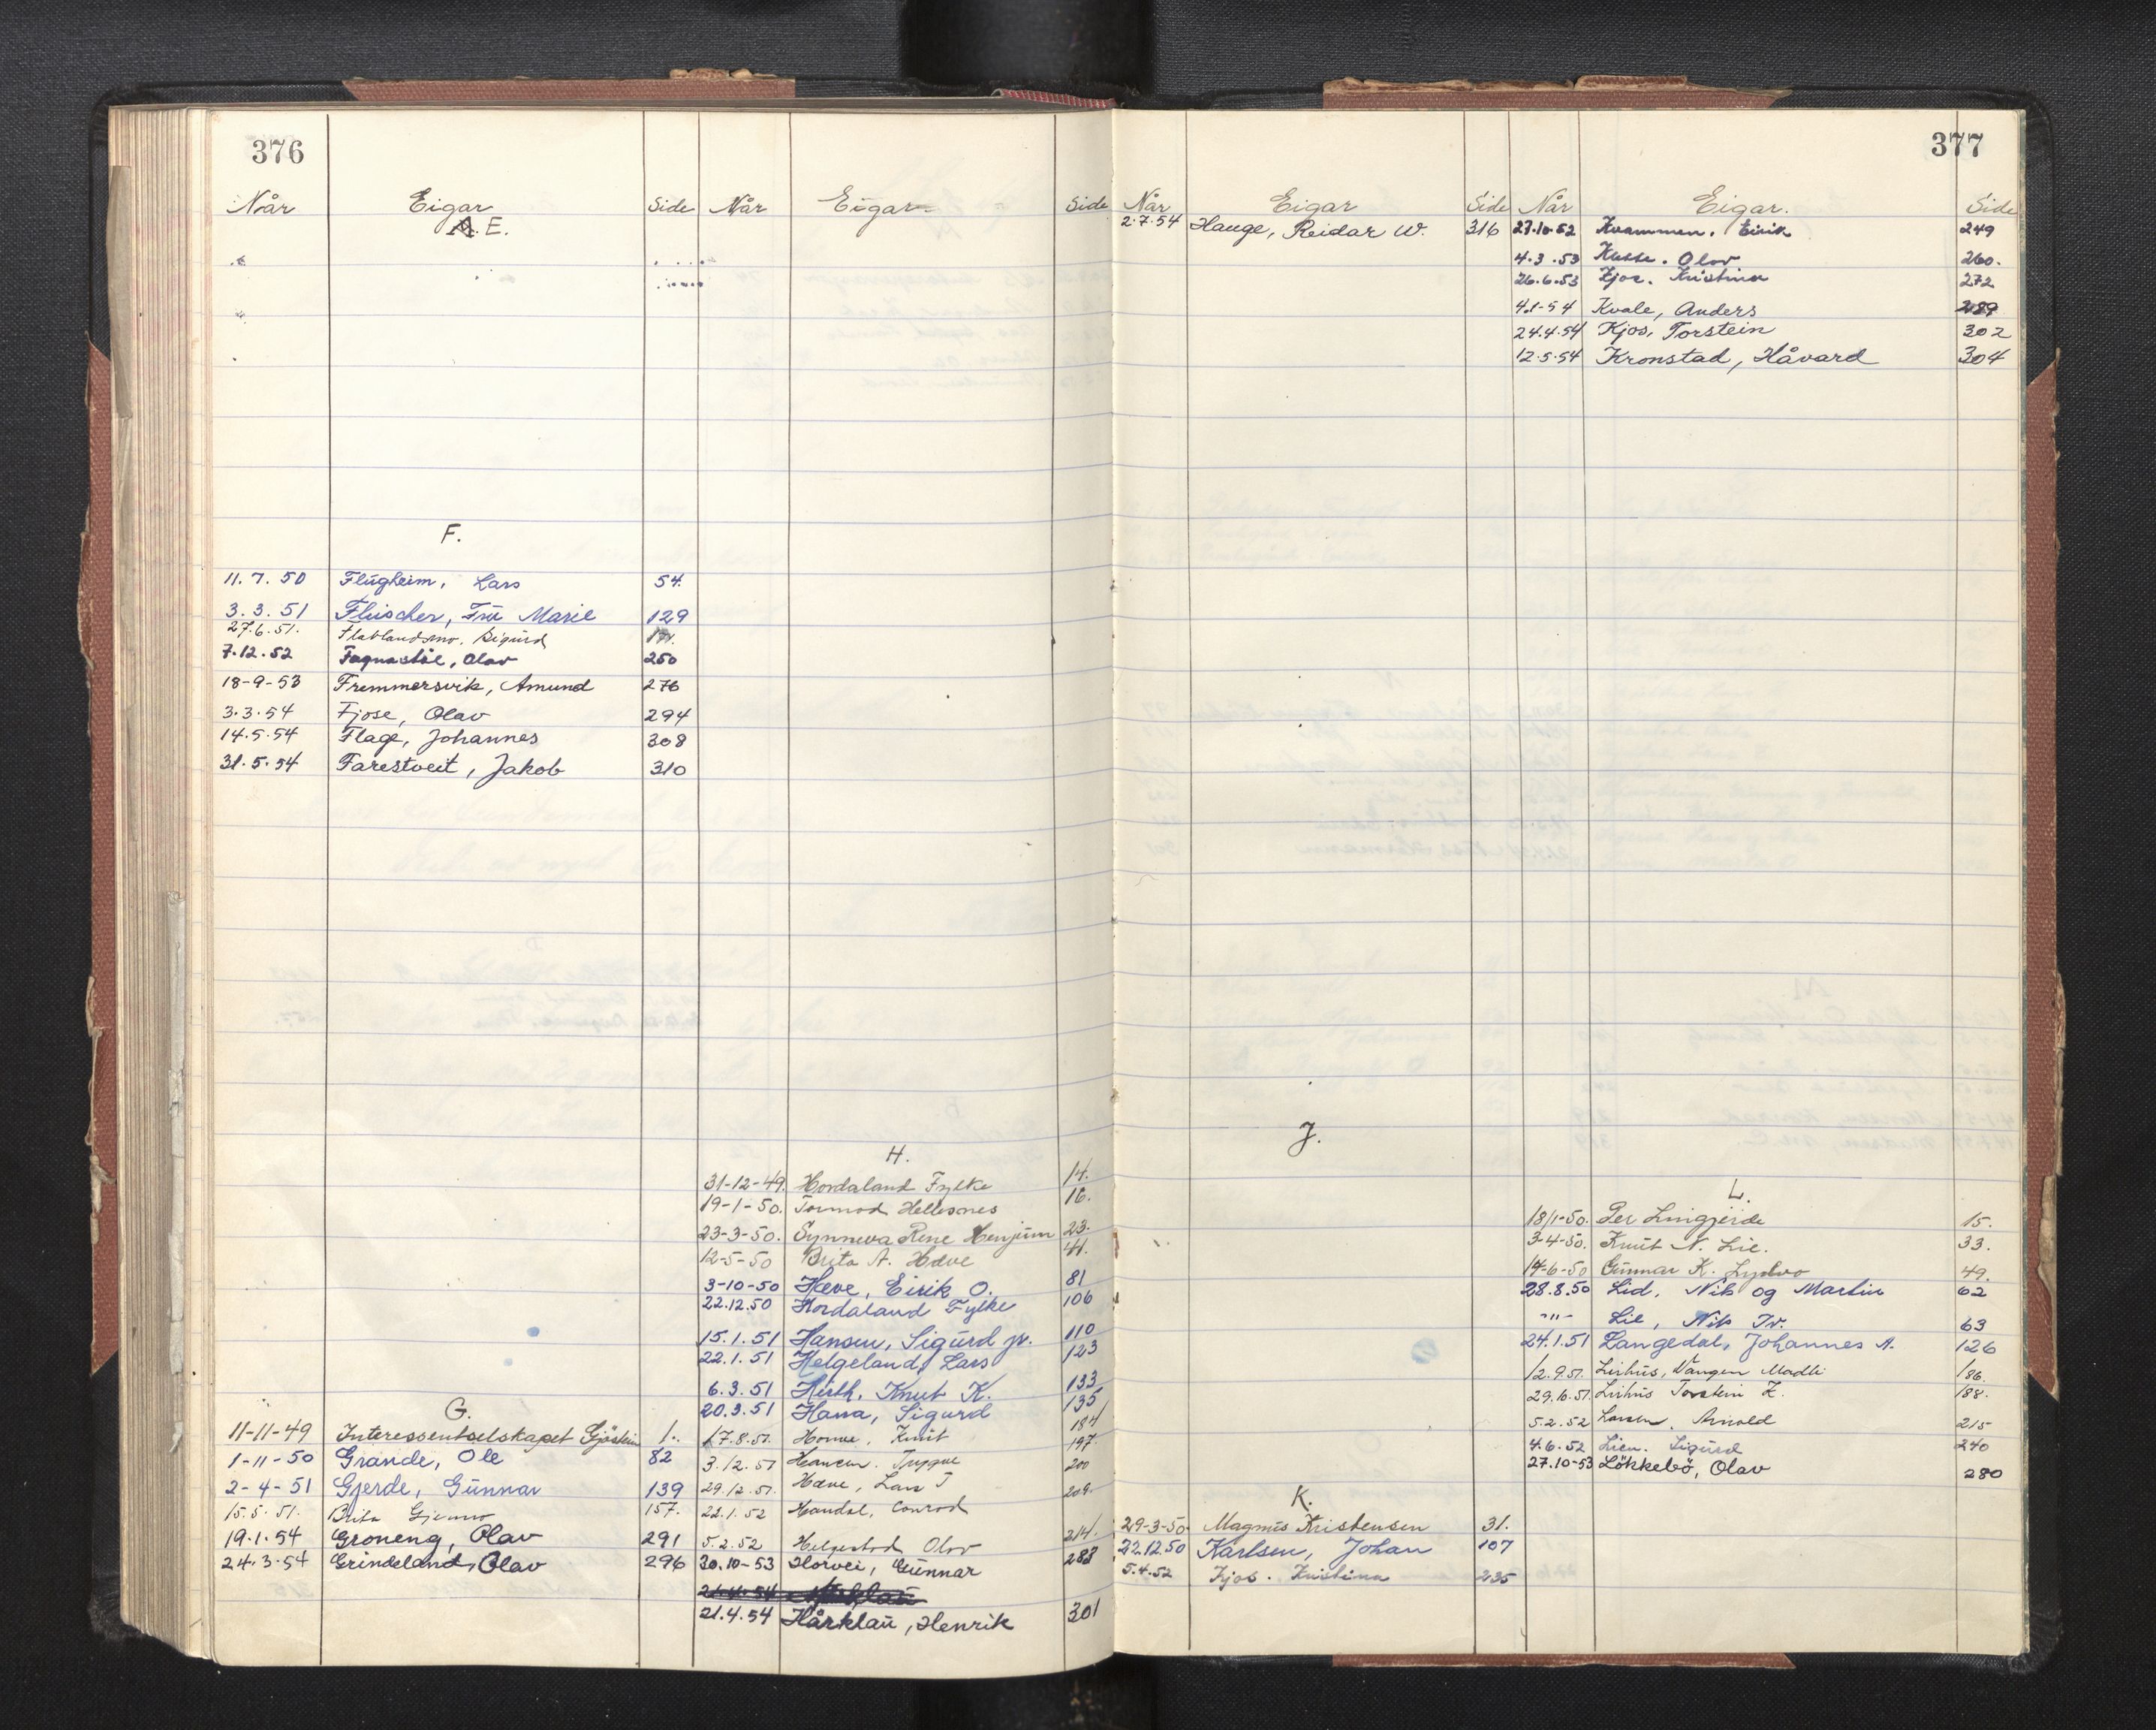 376
Når Eigar Side Når Eigar Side
E.
F.
11.7.50 Flugheim, Lars 54.
3.3.51 Fleischer, Frü Marie 129
27.6.51. Sigurd
7.12.52 Fagnastöl, Olav 250
18-9-53 Fremmersvik, Amund 276
3.3.54 Fjose, Olav 294
14.5.54 Flage, Johannes 308
31.5.54 Farestveit, Jakob 310
G.
11-11-49 Interessentselskapet Gjöstein 1.
1-11-50 Grande, Ole 82
2-4-51 Gjerde, Günnar 139
15.5.51. Brita 157.
19.1.54 Groneng, Olav 291
24.3.54 Grindeland, Olav 296
H.
31-12-49. Hordaland Fylke 14.
19-1-50. Tormod Hellesnes 16.
23-3-50. Synneva Rene Henjüm 23.
12-5-50 Brita A. Hæve 41.
3-10-50 Hæve, Eirik O. 81
22.12.50 Hordaland Fylke 106
15.1.51 Hansen, Sigürd jr. 110
22.1.51 Helgeland, Lars 123
6.3.51 Hirth, Knut K. 133
20.3.51 Hana, Sigurd 135
17.8.51. Knüt 184
3.12.51 Hansen. Trygve 197
29.12.51. Hæve, Lars T 200
22.1.52 Handal, Conrad 209
5.2.52 Helgestad Olav 214.
30.10-53 Horvei, Günnar 283
21.4.54 Hårklaü, Henrik 301
377
Når Eigar Side Når Eigar. Side
2.7.54 Hauge, Reidar W. 316
J.
K.
29-3-50. Magnüs Kristensen 31.
22.12.50 Karlsen, Johan 107
5.4.52 Kjos. Kristina 235
27.10.52 Kvammen, Eirik 249
4.3.53 Olav 260.
26.6.53 Kjos. Kristina 272
4.1-54 Kvale, Anders 289
24.4.54 Kjos, Torstein 302
12.5.54 Kronstad, Håvard 304
L.
18/1-50. Per Lingjerde 15.
3-4-50. Knüt N. Lie. 33.
14-6-50 Günnar K. Lydvo 49.
28.8.50 Lid, Nik og Martin 62
-"- Lie, Nik Tr. 63
24.1.51 Langedal, Johannes A. 126
12.9.51. Lirhüs, Vangen Madli 186.
29.10.51. Lirhüs Torstein L. 188.
5.2.52 Larsen. Arnold 215
4.6.52 Lien. Sigürd 240
27.10-53 Lökkebö, Olav 280